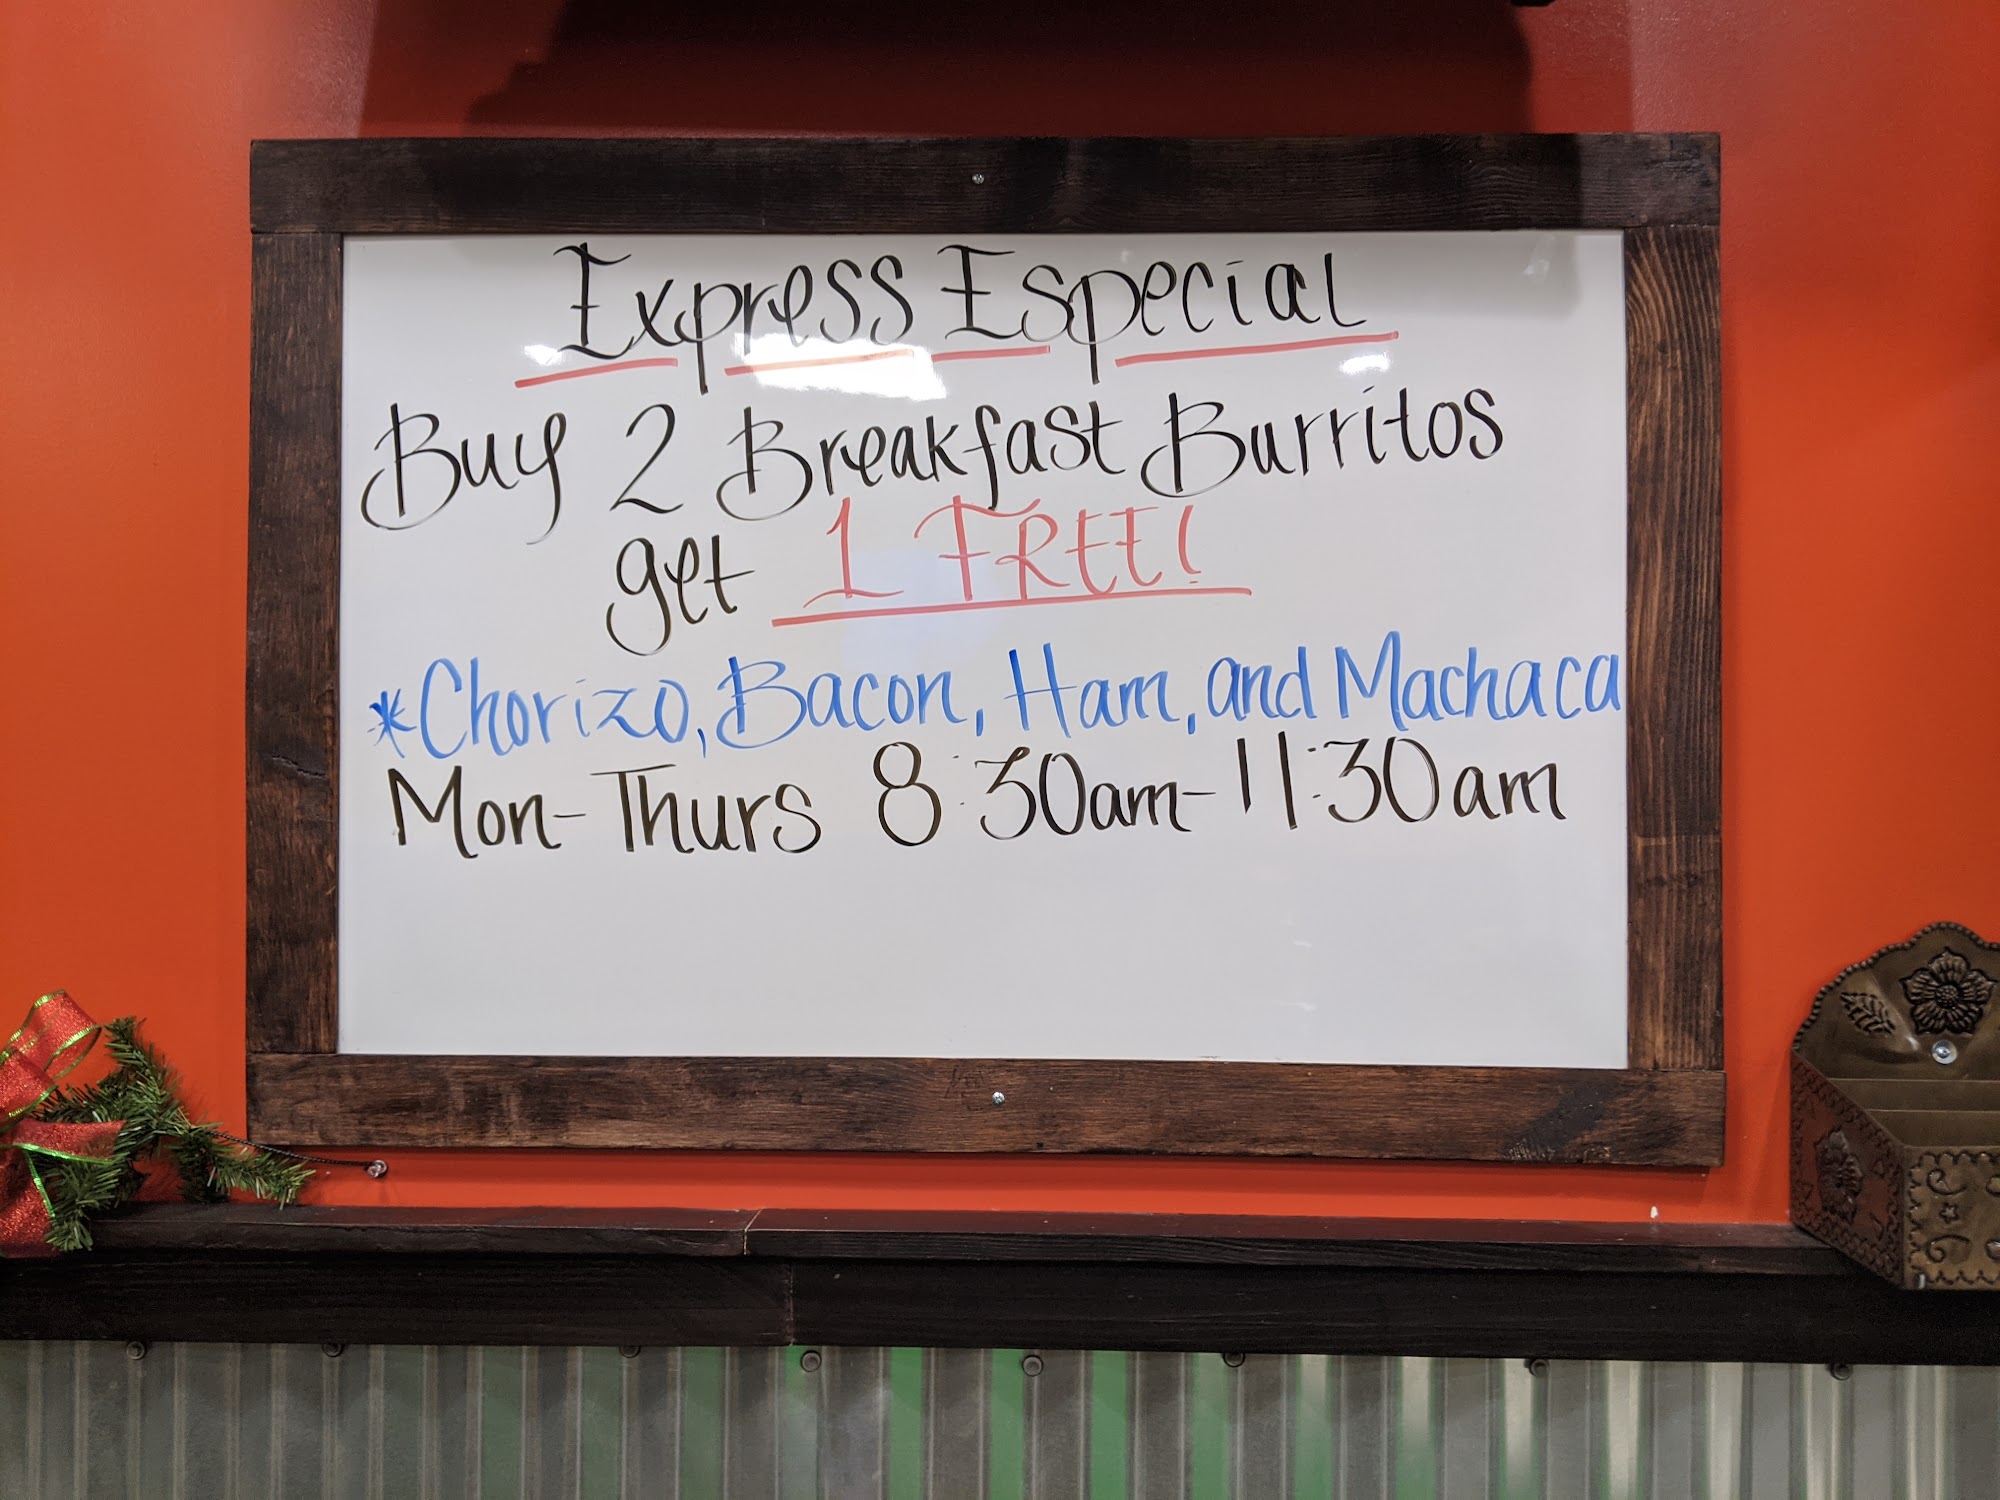 Express Especial
Buy 2 Breakfast Burritos
get 1 FREE!
*Chorizo, Bacon, Ham, and Machaca
Mon-Thurs 8:30am-11:30am